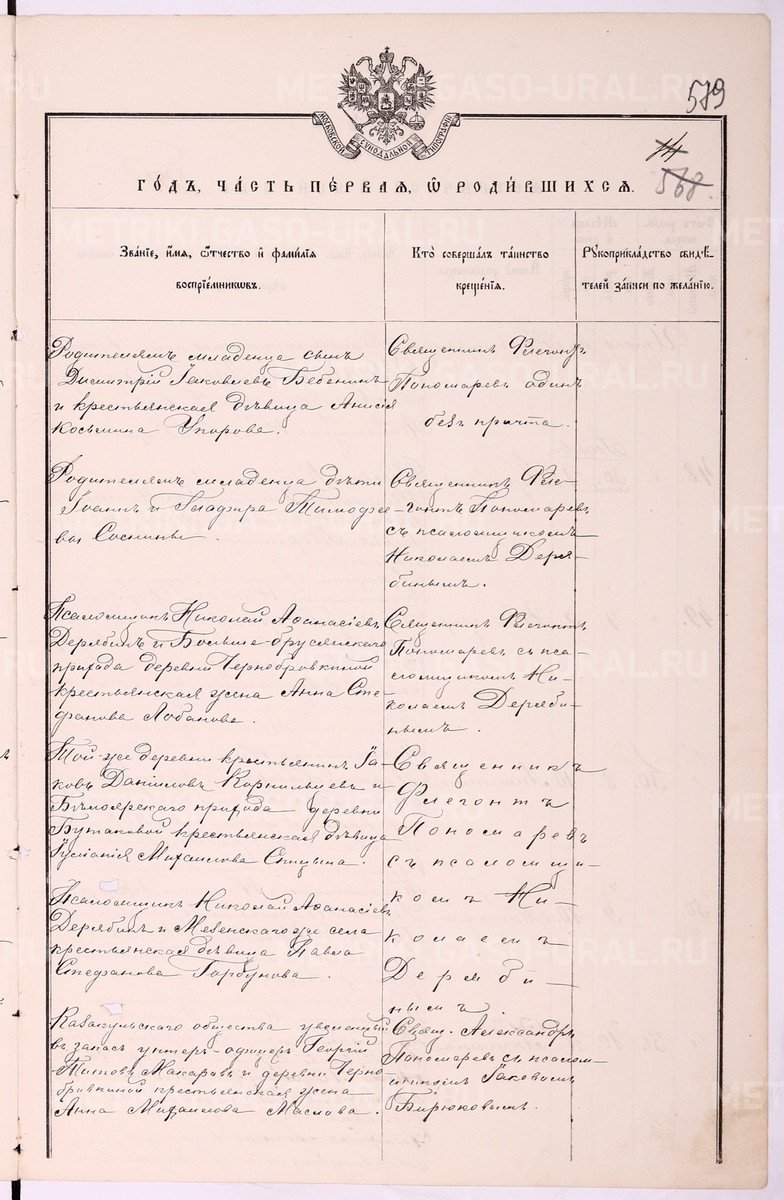 589
568.
МОСКОВСКОЙ СѴНОДАЛЬНОЙ ТИПОГРАФІИ
ГО́ДЪ, ЧА́СТЬ ПЕ́РВАЯ, Ѿ РОДИ́ВШИХСЯ.
Зва́нїе, и́мя, ѻ҆́тчество и҆ фами́лїя
воспрїе́мникѡвъ.
Кто̀ соверша́лъ та́инство
креще́нїѧ.
Рꙋкоприкла́дство свидѣ́-
телей за́писи по жела́нїю.
Родителямъ младенца сынъ
Димитрій Іаковлевъ Бебенинъ
и крестьянская дѣвица Анисія
Косьмина Упорова.
Священникъ Флегонтъ
Пономаревъ одинъ
безъ причта.
Родителямъ младенца дѣти
Іоаннъ и Глафира Тимофее
вы Соснины.
Священникъ Фле-
гонтъ Пономаревъ
съ псаломщикомъ
Николаемъ Деря-
бинымъ.
Псаломщикъ Николай Аѳанасіевъ
Дерябинъ и Больше-брусянскаго
прихода деревни Чернобровкиной
крестьянская жена Анна Сте-
фанова Лобанова.
Священникъ Флегонтъ
Пономаревъ съ пса-
ломщикомъ Ни-
колаемъ Деряби-
нымъ.
Той-же деревни крестьянинъ Іа-
ковъ Даніиловъ Корнильцевъ и
Бѣлоярскаго прихода деревни
Бутаковой крестьянская дѣвица
Михаилова
Священникъ
Флегонтъ
Пономаревъ
съ псаломщи-
комъ Ни-
колаемъ
Деряби-
нымъ.
Псаломщикъ Николай Аѳанасіевъ
Дерябинъ и Мезенскаго же села
крестьянская дѣвица Павла
Стефанова Горбунова.
Казакульскаго общества уволенный
въ запасъ унтеръ-офицеръ Георгій
Титовъ Макаровъ и деревни Черно-
бровкиной крестьянская жена
Анна Михаилова Маслова.
Свящ. Александръ
Пономаревъ съ псалом-
щикомъ Іаковомъ
Бирюковымъ.
METRIKI.GASO-URAL.RU